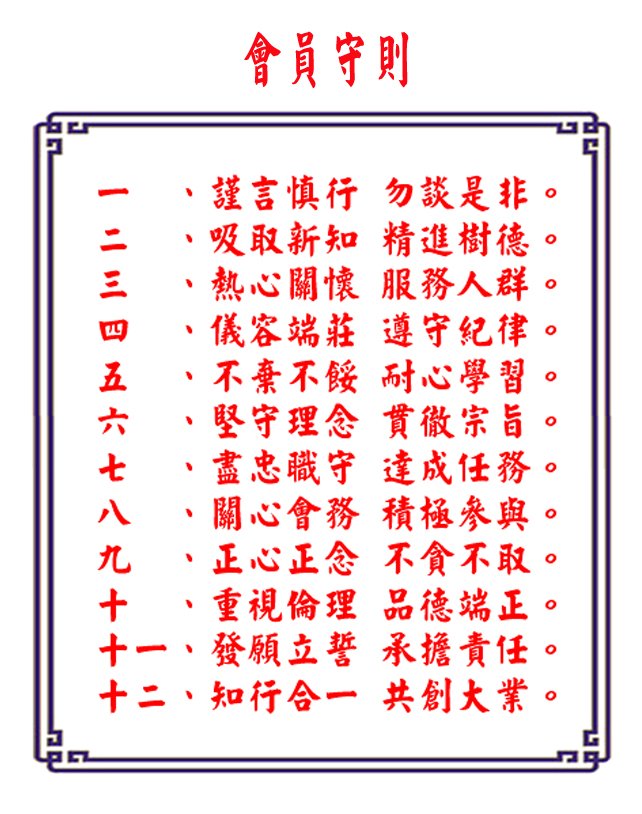 會員守則
一、謹言慎行 勿談是非。
二、吸取新知 精進樹德。
三、熱心關懷 服務人群。
四、儀容端莊 遵守紀律。
五、不棄不餒 耐心學習。
六、堅守理念 貫徹宗旨。
七、盡忠職守 達成任務。
八、關心會務 積極參與。
九、正心正念 不貪不取。
十、重視倫理 品德端正。
十一、發願立誓 承擔責任。
十二、知行合一 共創大業。